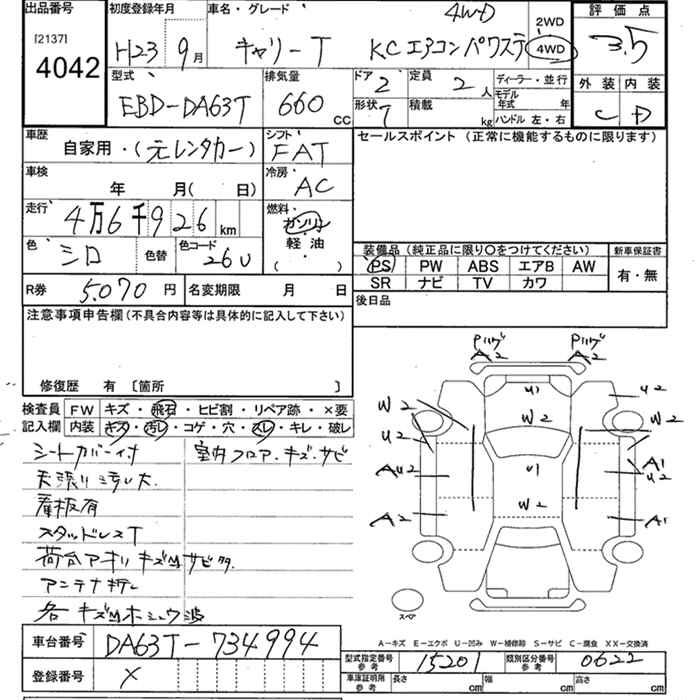 出品番号
[2137]
4042
初度登録年月
H23 9月
車名・グレード
4WD
キャリーT KCエアコンパワステ
2WD
4WD
評価点
3.5
外装 内装
C D
型式
EBD-DA63T
排気量
660 CC
ドア 2
形状 7
定員 2 人
積載 kg
ディーラー・並行
モデル年式 年
ハンドル 左・右
車歴
自家用・(元レンタカー)
シフト
FAT
車検
年 月(日)
冷房
AC
走行
4万6千926 km
燃料
ガソリン
軽油
( )
色
シロ
色替
色コード
26U
R券
5.070 円
名変期限 月 日
セールスポイント (正常に機能するものに限ります)
装備品 (純正品に限り○をつけてください)
PS PW ABS エアB AW
SR ナビ TV カワ
新車保証書
有・無
後日品
注意事項申告欄(不具合内容等は具体的に記入して下さい)
修復歴 有 [箇所 ]
検査員記入欄
FW キズ・飛石・ヒビ割・リペア跡・×要
内装 キズ・汚レ・コゲ・穴・スレ・キレ・破レ
シートカバー付
室内フロア・キズ・サビ
天張り汚レ大
看板有
スタッドレスT
荷台アオリキズMサビタ
アンテナ折レ
各キズM
A2
A2
U1
U2
W2
W2
W2
U2
U1
A1
U2
AU2
W2
A2
A1
スペア
A-キズ E-エクボ U-凹み W-補修跡 S-サビ C-腐食 XX-交換済
車台番号
DA63T-734994
登録番号
×
型式指定番号
参考
15201
類別区分番号
参考
0622
車庫証明用
参考
長さ cm 幅 cm 高さ cm